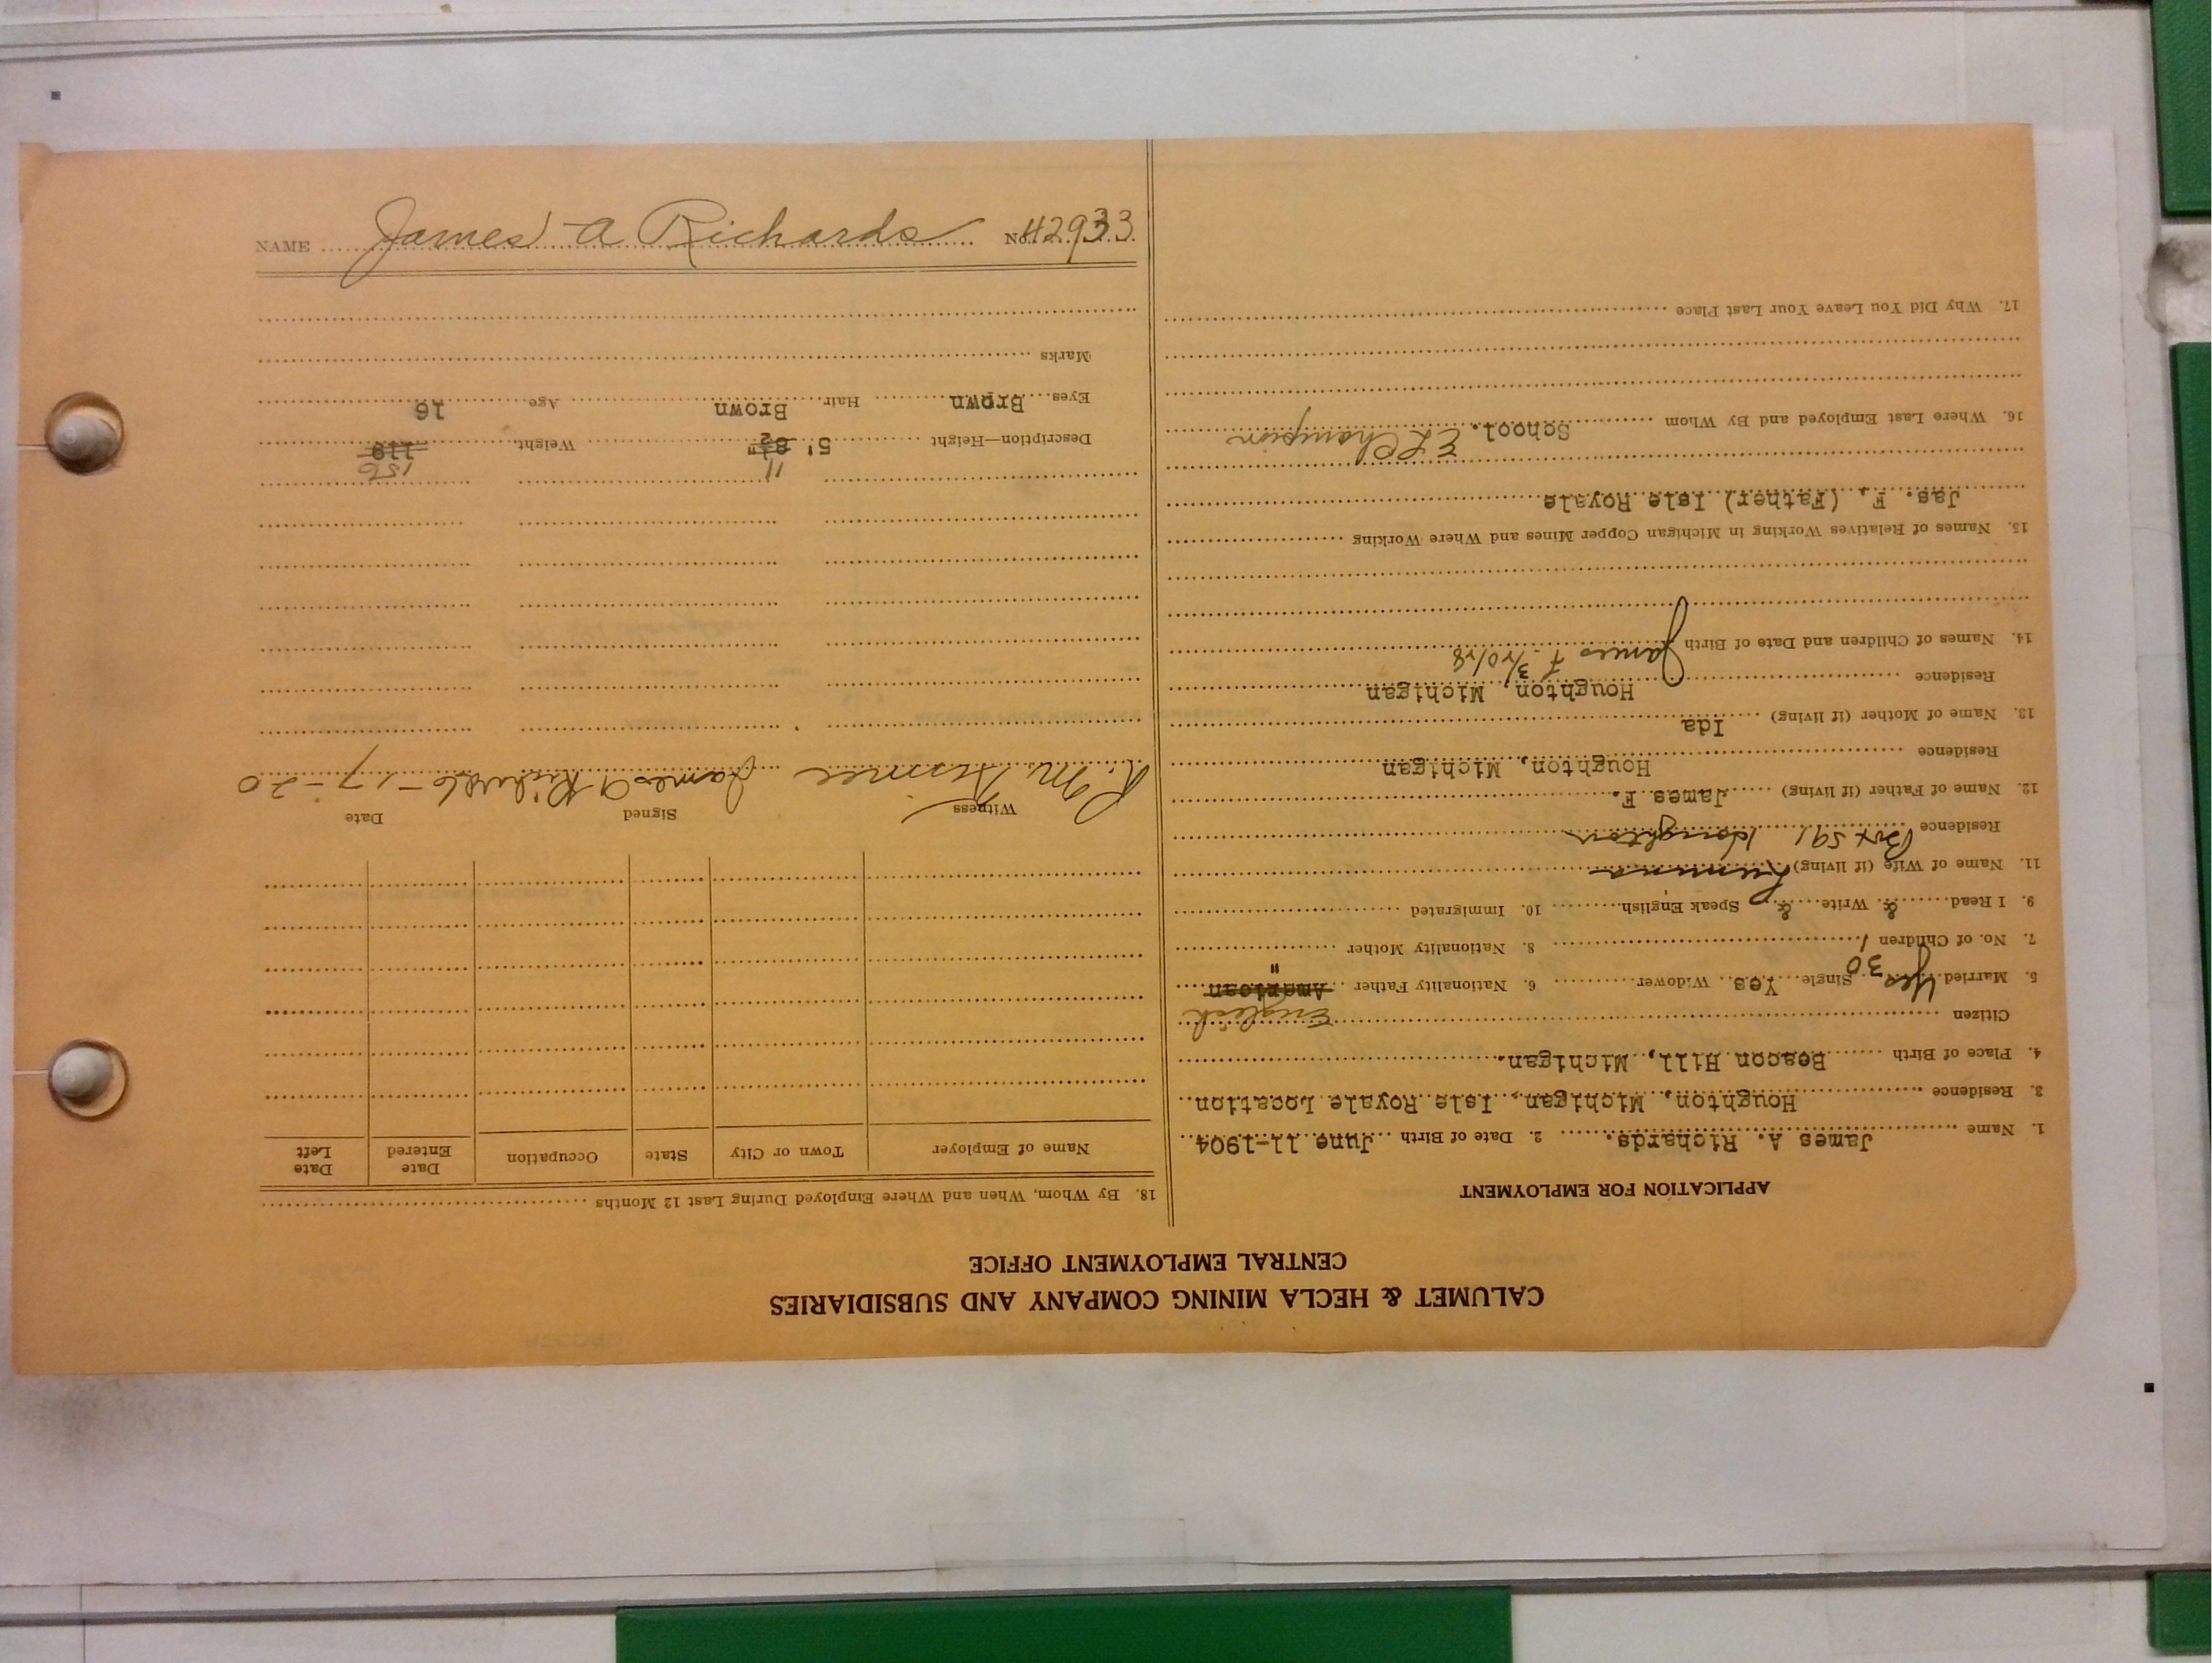 CALUMET & HECLA MINING COMPANY AND SUBSIDIARIES
CENTRAL EMPLOYMENT OFFICE
APPLICATION FOR EMPLOYMENT
1. Name James A. Richards. 2. Date of Birth June 11-1904
3. Residence Houghton, Michigan, Isle Royale Location
4. Place of Birth Beacon Hill, Michigan.
Citizen English
5. Married Yes 30 Single Yes Widower 6. Nationality Father American "
7. No. of Children 1 8. Nationality Mother
9. I Read & Write & Speak English 10. Immigrated
11. Name of Wife (if living)
Residence Box 591 Houghton
12. Name of Father (if living) James F.
Residence Houghton, Michigan
13. Name of Mother (if living) Ida
Residence Houghton, Michigan
14. Names of Children and Date of Birth James F. 3/20/28
15. Names of Relatives Working in Michigan Copper Mines and Where Working
Jas. F. (Father) Isle Royale
16. Where Last Employed and By Whom School. E L Champion
17. Why Did You Leave Your Last Place
18. By Whom, When and Where Employed During Last 12 Months
Name of Employer Town or City State Occupation Date Entered Date Left
Witness Signed Date
R. M. James A Richards 6-17-20
11 150
Description—Height 5' 8½" Weight 119
Eyes Brown Hair Brown Age 16
Marks
NAME James A Richards No. 42933